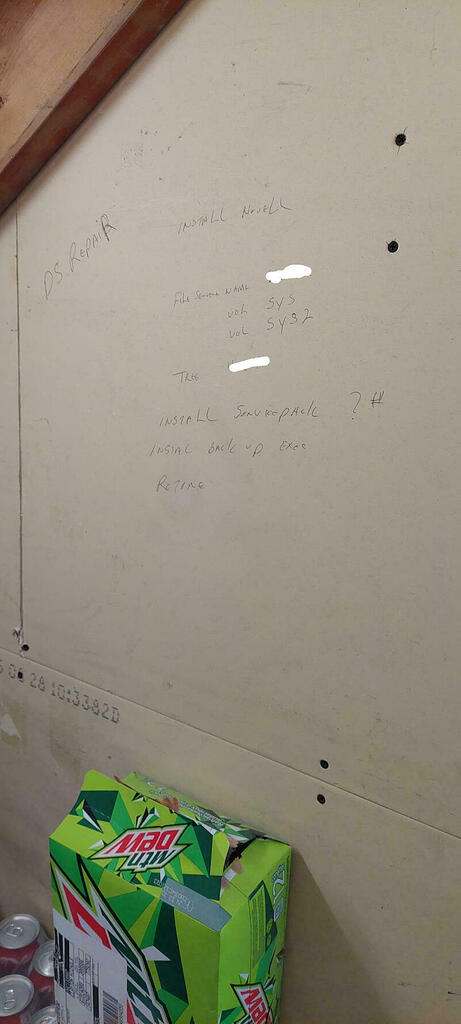 DS. REPAIR
INSTALL NOVELL
FILE SERVER NAME
VOL SYS
VOL SYS2
TREE
INSTALL SERVICEPACK ? #
INSTAL BACK UP EXEC
RESTORE
28 10:3382D
mtn
DEW
12